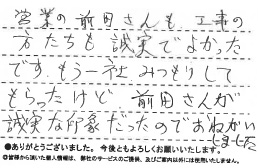 営業の前田さんも工事の
方たちも誠実でよかった
です もう一社みつもりして
もらったけど 前田さんが
誠実な印象だったのでおねがい
しました
●ありがとうございました。今後ともよろしくお願いいたします。
◎皆様から頂いた個人情報は、弊社のサービスのご提供、及びご案内以外には使用いたしません。